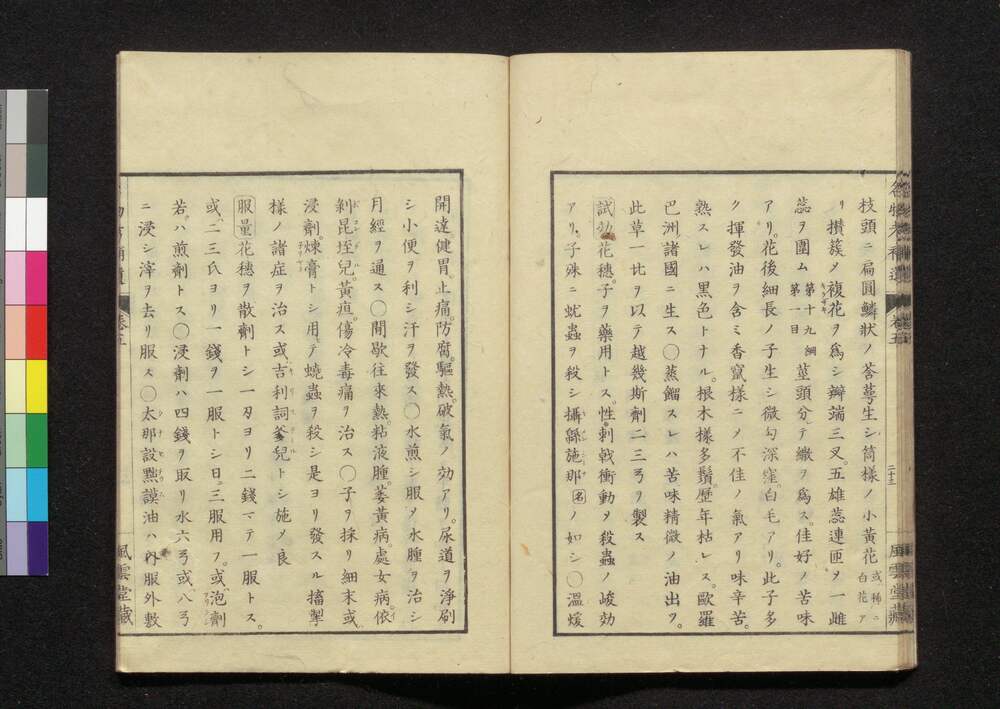 枝頭ニ扁圓鱗狀ノ苔萼生シ筒樣ノ小黃花或ハ稀ニ白花ア
リ攅簇〆複花ヲ爲シ瓣端三叉。五雄蕊連匝〆一雌
蕊ヲ圍ム第十九綱第一目莖頭分テ繖ヲ爲ス。佳好ノ苦味
アリ。花後細長ノ子生シ微勾深窪。白毛アリ。此子多
ク揮發油ヲ含ミ香竄樣ニ〆不佳ノ氣アリ味辛苦。
熟スレハ黑色トナル。根木樣多鬚。歷年枯レス。歐羅
巴洲諸國ニ生ス〇蒸餾スレハ苦味精微ノ油出ヲ。
此草一比ヲ以テ越幾斯劑二三弓ヲ製ス
試効花穗。子ヲ藥用トス。性。刺戟衝動〆殺蟲ノ峻効
アリ。子殊ニ蚘蟲ヲ殺シ攝緜施那名ノ如シ〇溫煖
二十三
風雲堂藏
開達。健胃。止痛。防腐。驅熱。破氣ノ効アリ。尿道ヲ淨刷
シ小便ヲ利シ汗ヲ發ス〇水煎シ服〆水腫ヲ治シ
月經ヲ通ス〇間歇往來熱。粘液腫。萎黃病。處女病。依
剝昆垤兒。黃疸。傷冷毒痛ヲ治ス〇子ヲ採リ細末或
浸劑。煉膏トシ用テ蟯蟲ヲ殺シ是ヨリ發スル搐掣
樣ノ諸症ヲ治ス或。吉利詞爹兒トシ施〆良
服量花穗ヲ散劑トシ一刄ヨリ二錢マテ一服トス。
或。二三氏ヨリ一錢ヲ一服トシ日。三服用フ。或。泡劑
若。ハ煎劑トス〇浸劑ハ四錢ヲ取リ水六弓或。八弓
ニ浸シ滓ヲ去リ服ス〇太那設㸃謨油ハ內服外敷
卷五
風雲堂藏